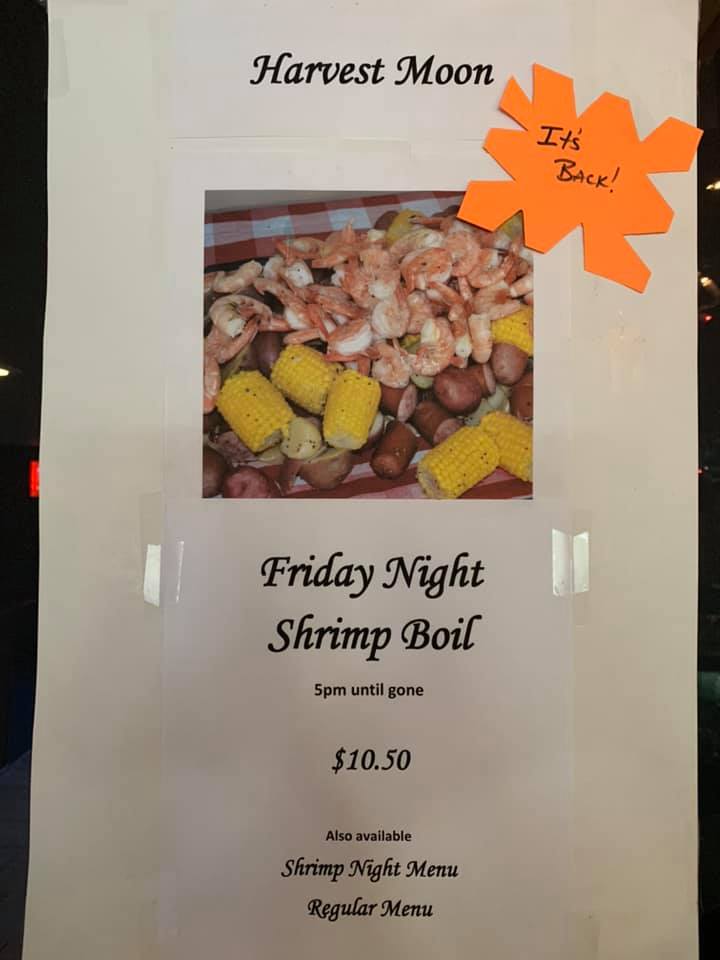 Harvest Moon
It's
Back!
Friday Night
Shrimp Boil
5pm until gone
$10.50
Also available
Shrimp Night Menu
Regular Menu